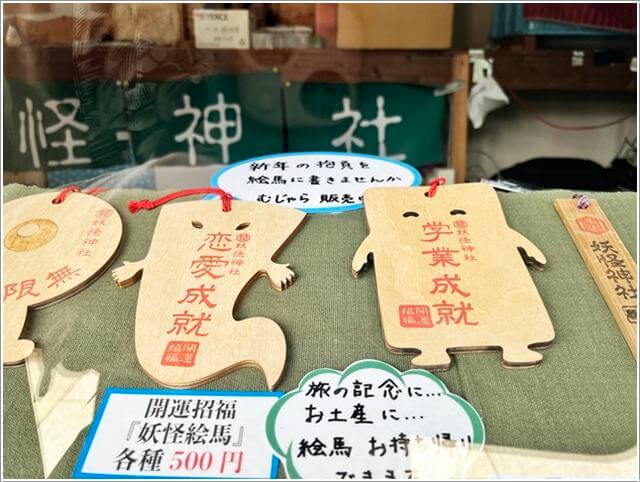 怪・神社
新年の抱負を
絵馬に書きませんか
むじゃら 販売
妖怪神社
無限
妖怪神社
恋愛成就
開運招福
妖怪神社
学業成就
開運招福
妖怪神社
開運招福
『妖怪絵馬』
各種500円
旅の記念に…
お土産に…
絵馬 お持ち帰り
できます